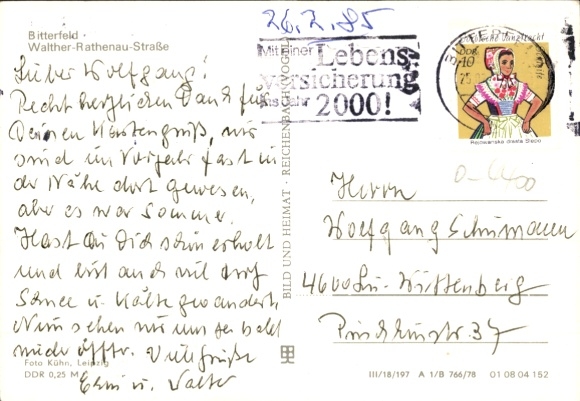 26.2.85
Bitterfeld ·
Walther-Rathenau-Straße
Lieber Wolfgang!
Recht herzlichen Dank für
Deinen Kartengruß, wir
sind im Vorjahr fast in
der Nähe dort gewesen,
aber es war Sommer.
Hast Du Dich schön erholt
und bist auch viel
Schnee u. Kälte gewandert.
Nun sehen wir uns ja bald
wieder öfter. Viele Grüße
Erni u. Walter
Foto Kühn, Leipzig
DDR 0,25 M
BILD UND HEIMAT · REICHENBACH (VOGTL)
Mit einer
Lebens-
versicherung
ins Jahr
2000!
DDR
10
Herrn
Wolfgang Schumann
4600 Lu-Wittenberg
Puschkinstr. 37
III/18/197 A 1/B 766/78 01 08 04 152